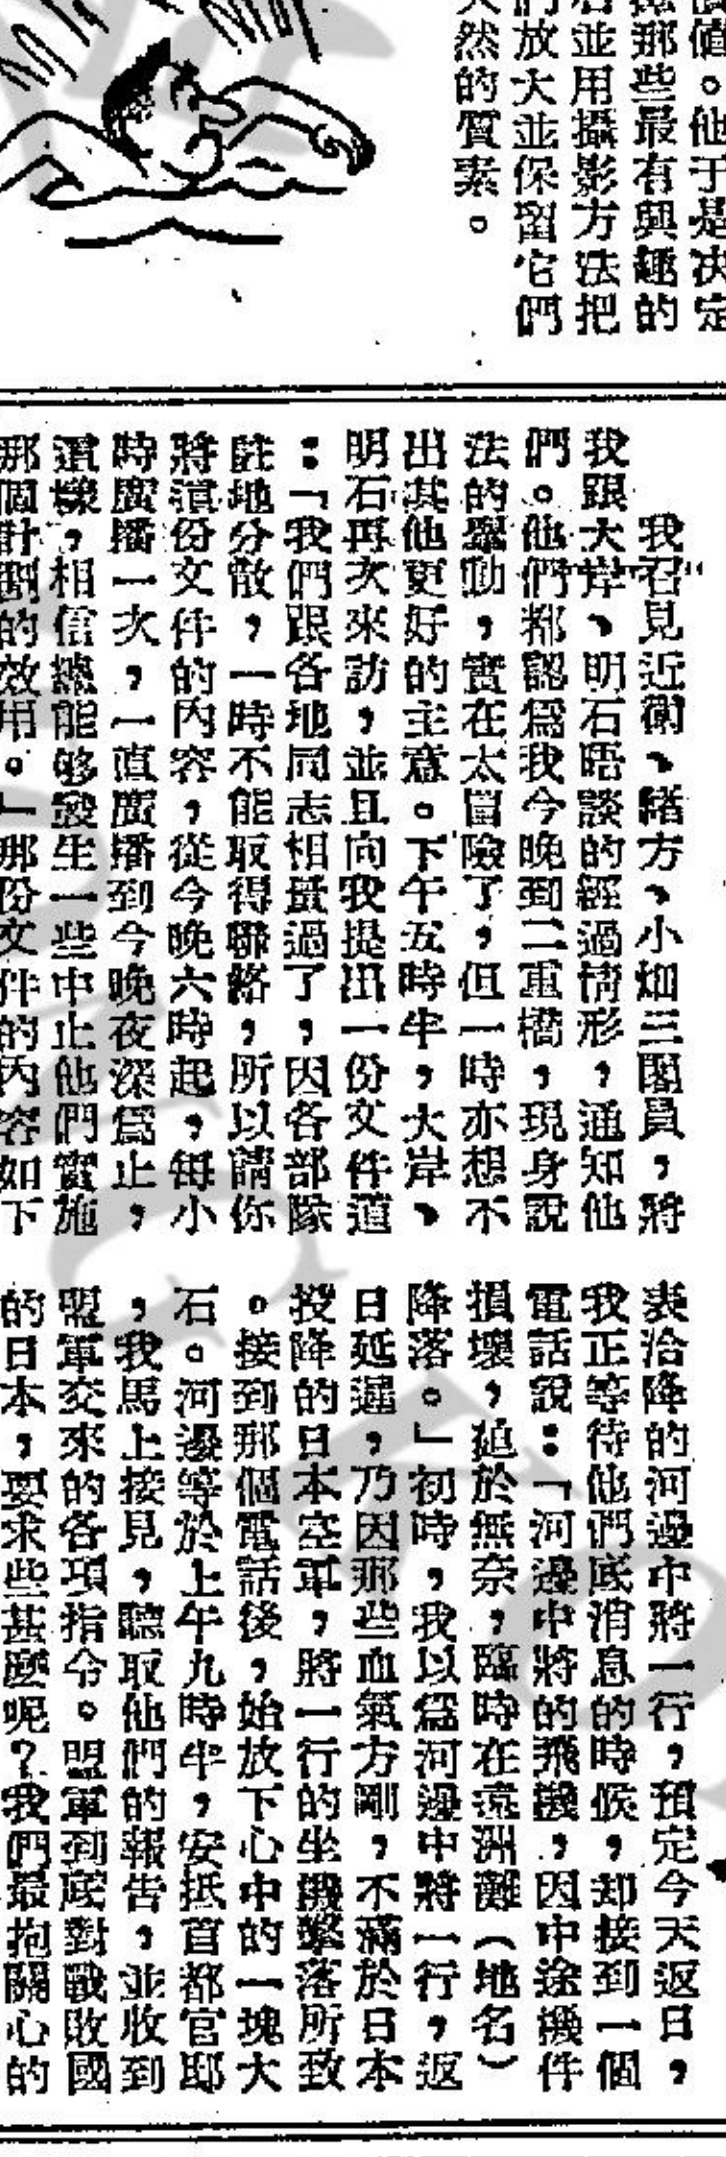 値。他于是决定
那些最有興趣的
並用攝影方法把
們放大並保留它們
然的質素。
我召見近衛、緒方、小畑三閣員，將
我跟大岸、明石晤談的經過情形，通知他
們。他們都認爲我今晚到二重橋，現身說
法的舉動，實在太冒險了，但一時亦想不
出其他更好的主意。下午五時半，大岸、
明石再次來訪，並且向我提出一份文件道
：「我們跟各地同志相量過了，因各部隊
駐地分散，一時不能取得聯絡，所以請你
將這份文件的內容，從今晚六時起，每小
時廣播一次，一直廣播到今晚夜深爲止，
這樣，相信總能够發生一些中止他們實施
那個計劃的效用。」那份文件的內容如下
表洽降的河邊中將一行，預定今天返日，
我正等待他們底消息的時候，却接到一個
電話說：「河邊中將的飛機，因中途機件
損壞，迫於無奈，臨時在遠洲灘（地名）
降落。」初時，我以爲河邊中將一行，返
日延遲，乃因那些血氣方剛，不滿於日本
投降的日本空軍，將一行的坐機擊落所致
。接到那個電話後，始放下心中的一塊大
石。河邊等於上午九時半，安抵首都官邸
，我馬上接見，聽取他們的報告，並收到
盟軍交來的各項指令。盟軍到底對戰敗國
的日本，要求些甚麽呢？我們最抱關心的